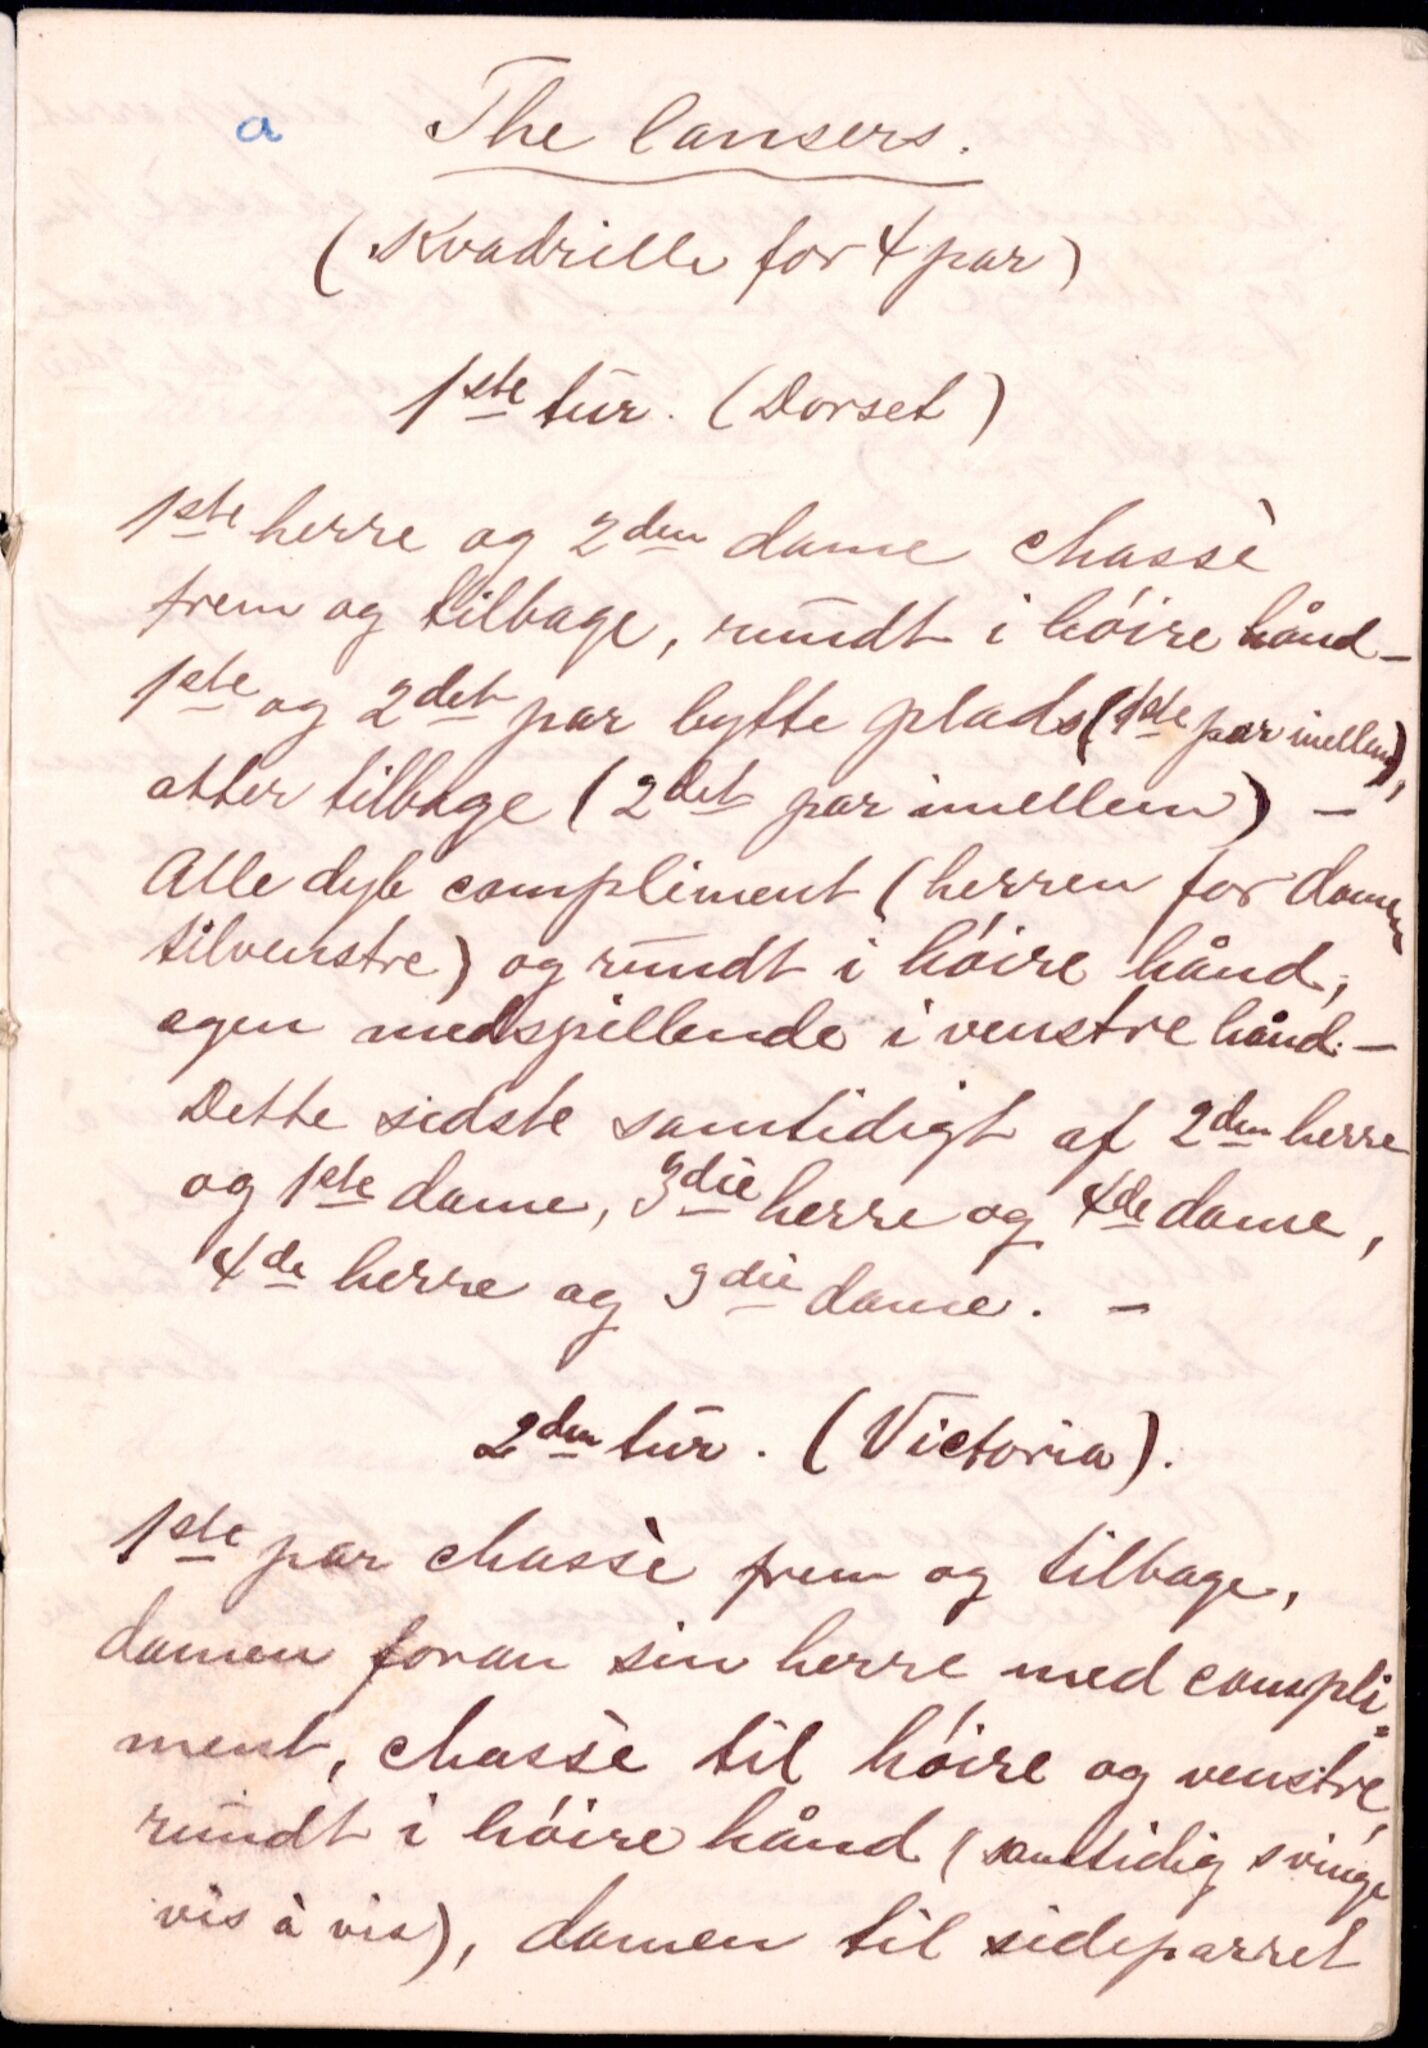 a The lansers.
(Kvadrille for 4 par)
1ste tur. (Dorset)
1ste herre og 2den dame chassè
frem og tilbage, rundt i höire hånd –
1ste og 2det par bytte plads (1ste par imellem),
atter tilbage (2det par imellem) –
Alle dyb compliment (herren for damen
tilvenstre) og rundt i höire hånd,
egen medspillende i venstre hånd. –
Dette sidste samtidigt af 2den herre
og 1ste dame, 3die herre og 4de dame,
4de herre og 3die dame. –
2den tur. (Victoria).
1ste par chassè frem og tilbage,
damen foran sin herre med compli=
ment, chassè til höire og venstre,
rundt i höire hånd (samtidig svinge
vis à vis), damen til sideparret